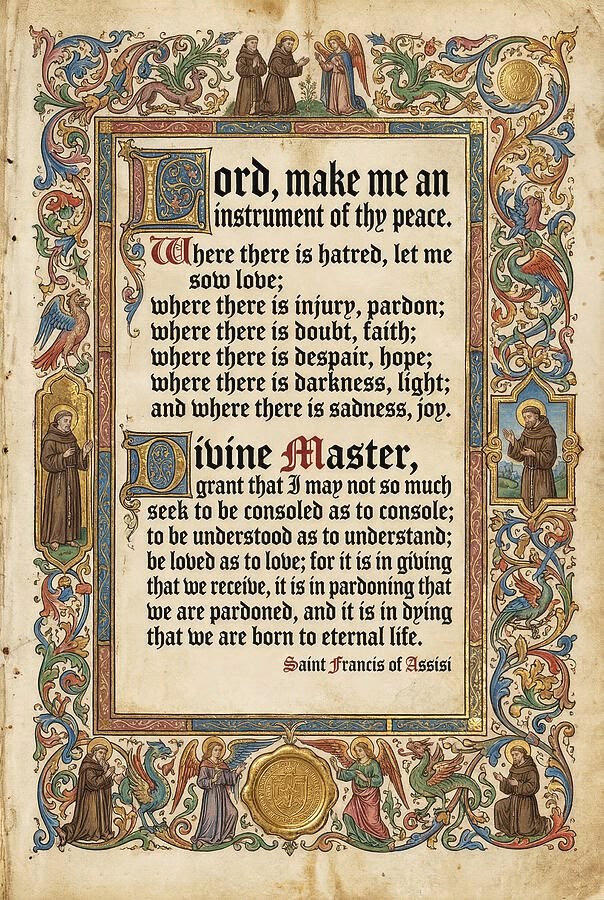 Lord, make me an
instrument of thy peace.
Where there is hatred, let me
sow love;
where there is injury, pardon;
where there is doubt, faith;
where there is despair, hope;
where there is darkness, light;
and where there is sadness, joy.
Divine Master,
grant that I may not so much
seek to be consoled as to console;
to be understood as to understand;
be loved as to love; for it is in giving
that we receive, it is in pardoning that
we are pardoned, and it is in dying
that we are born to eternal life.
Saint Francis of Assisi